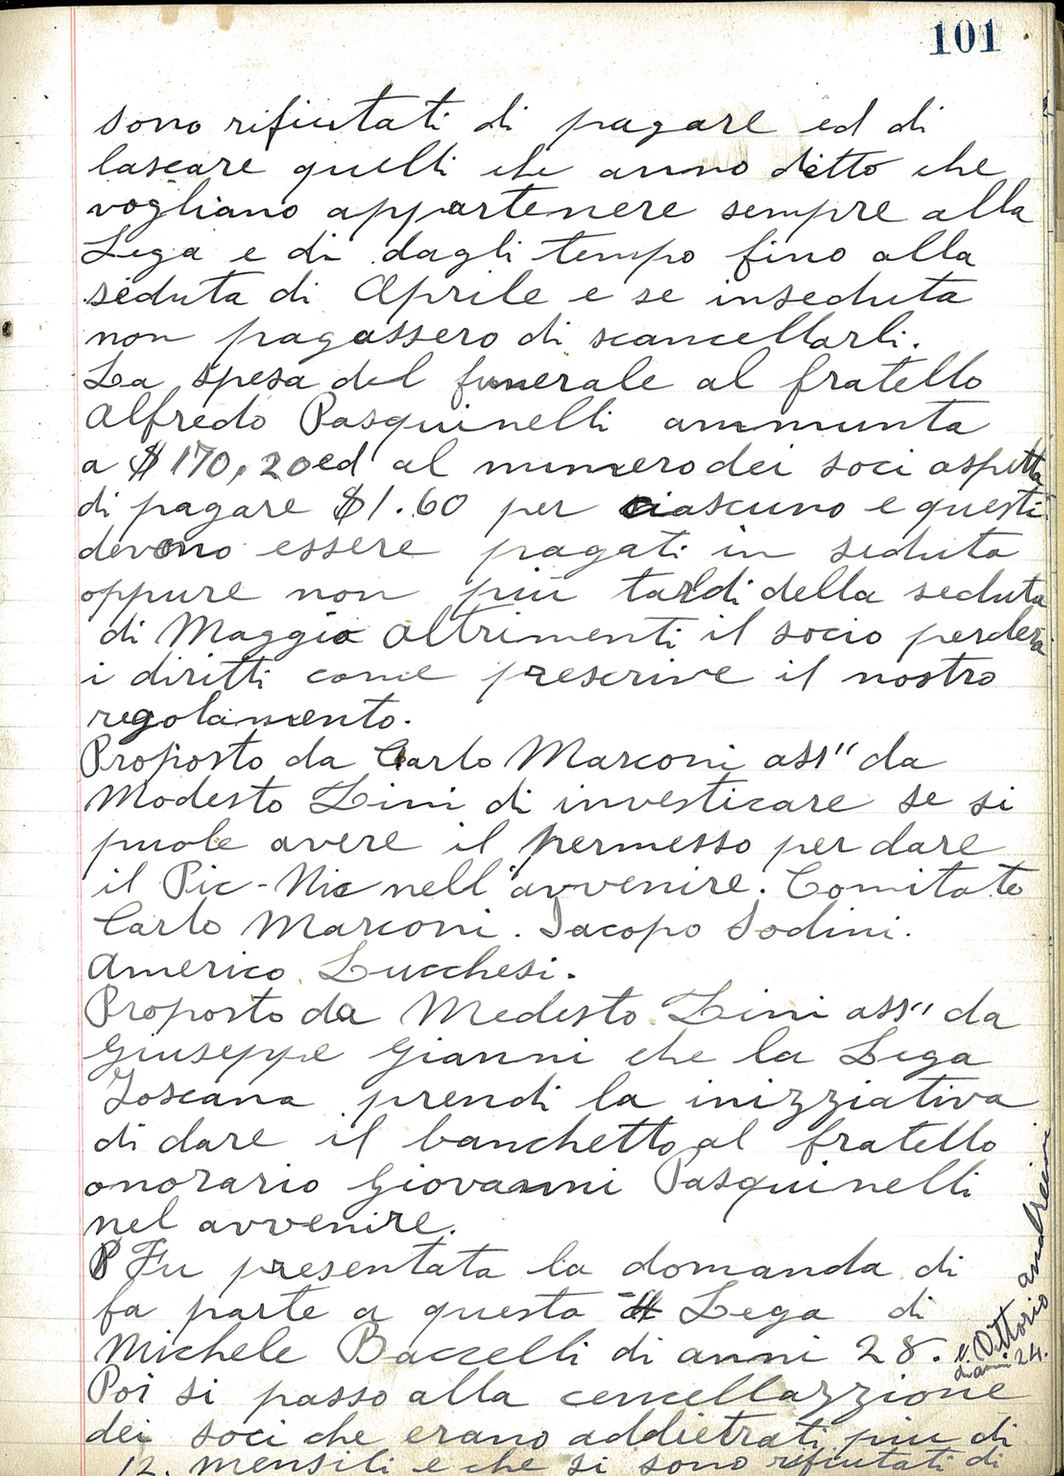 101
sono rifiutati di pagare ed di
lascare quelli che anno ditto che
vogliano appartenere sempre alla
Lega e di dagli tempo fino alla
seduta di Aprile e se inseduta
non pagassero di scancellarli.
La spesa del funerale al fratello
Alfredo Pasquinelli ammunta
a $170,20 ed al numero dei soci aspetta
di pagare $1.60 per ciascuno e questi
devono essere pagati in seduta
oppure non più tardi della seduta
di Maggio altrimenti il socio perderà
i diritti come prescrive il nostro
regolamento.
Proposto da Carlo Marconi ass" da
Modesto Lini di investicare se si
puole avere il permesso per dare
il Pic-Nic nell'avvenire. Comitato
Carlo Marconi. Jacopo Sodini.
Americo Lucchesi.
Proposto da Modesto Lini ass" da
Giuseppe Gianni che la Lega
Toscana prendi la inizziativa
di dare il banchetto al fratello
onorario Giovanni Pasquinelli
nel avvenire.
Fu presentata la domanda di
fa parte a questa Lega di
Michele Baccelli di anni 28.
e Vittorio Andreini
di anni 24.
Poi si passo alla cencellazzione
dei soci che erano addietrati piu di
12. mensili e che si sono rifiutati di